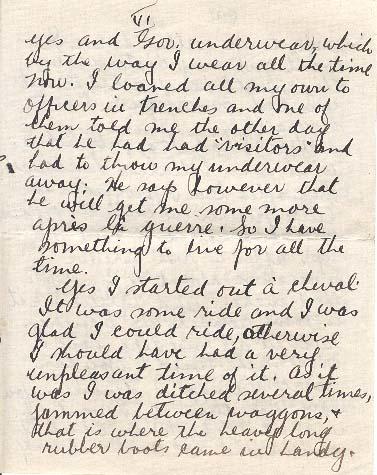 VI
yes and Gov. underwear, which
by the way I wear all the time
now. I loaned all my own to
officers in trenches and one of
them told me the other day
that he had had "visitors" and
had to throw my underwear
away; He says however that
he will get me some more
après la guerre. So I have
something to live for all the
time.
Yes I started out à cheval.
It was some ride and I was
glad I could ride, otherwise
I should have had a very
unpleasant time of it. As it
was I was ditched several times,
jammed between waggons, +
that is where the heavy long
rubber boots came in handy.